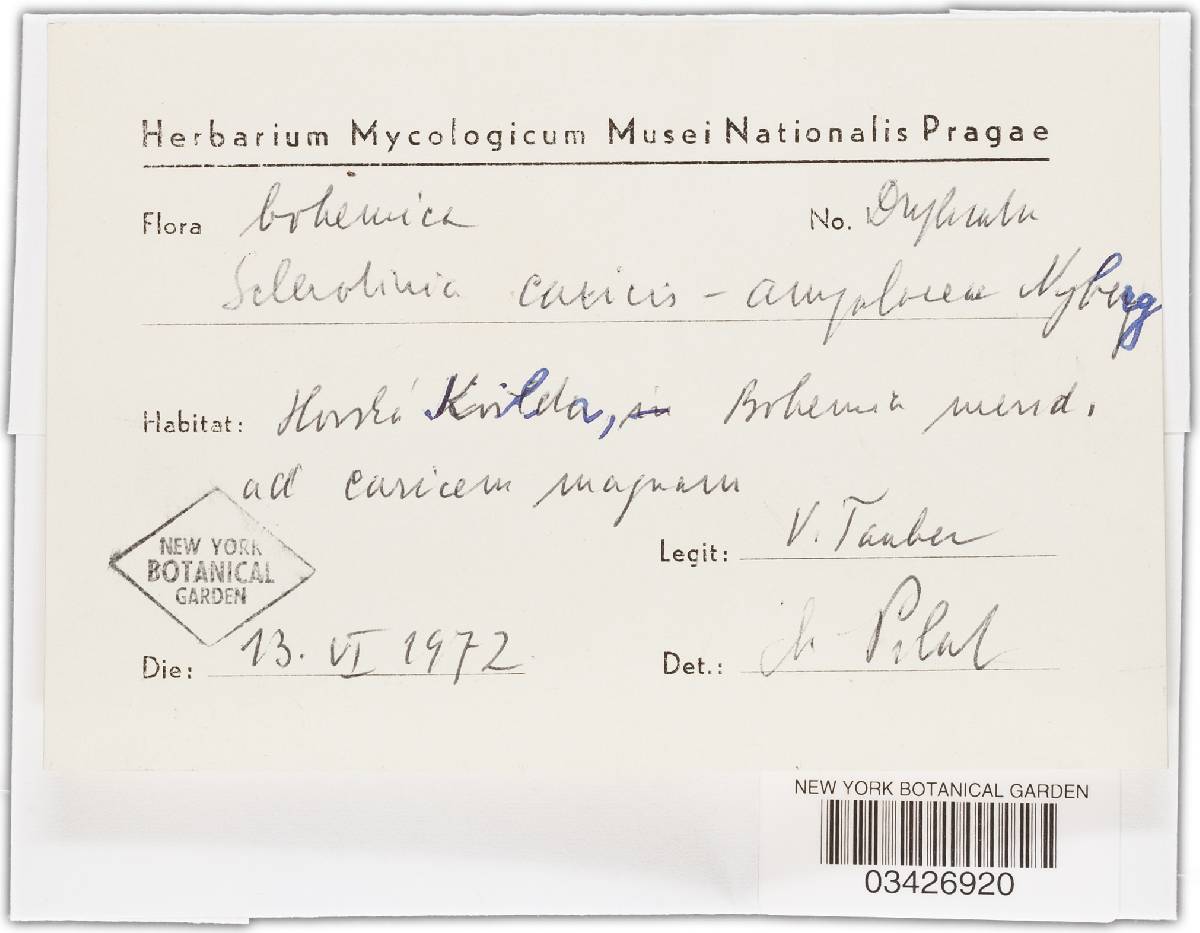 Herbarium Mycologicum Musei Nationalis Pragae
Flora bohemica No.
Sclerotinia caricis - ampulacea Nyberg
Habitat: Horská Kvilda, in Bohemia merid.
ad caricem magnam
NEW YORK
BOTANICAL
GARDEN
Legit: V. Tauber
Die: 13. VI 1972 Det.: Pilat
NEW YORK BOTANICAL GARDEN
03426920